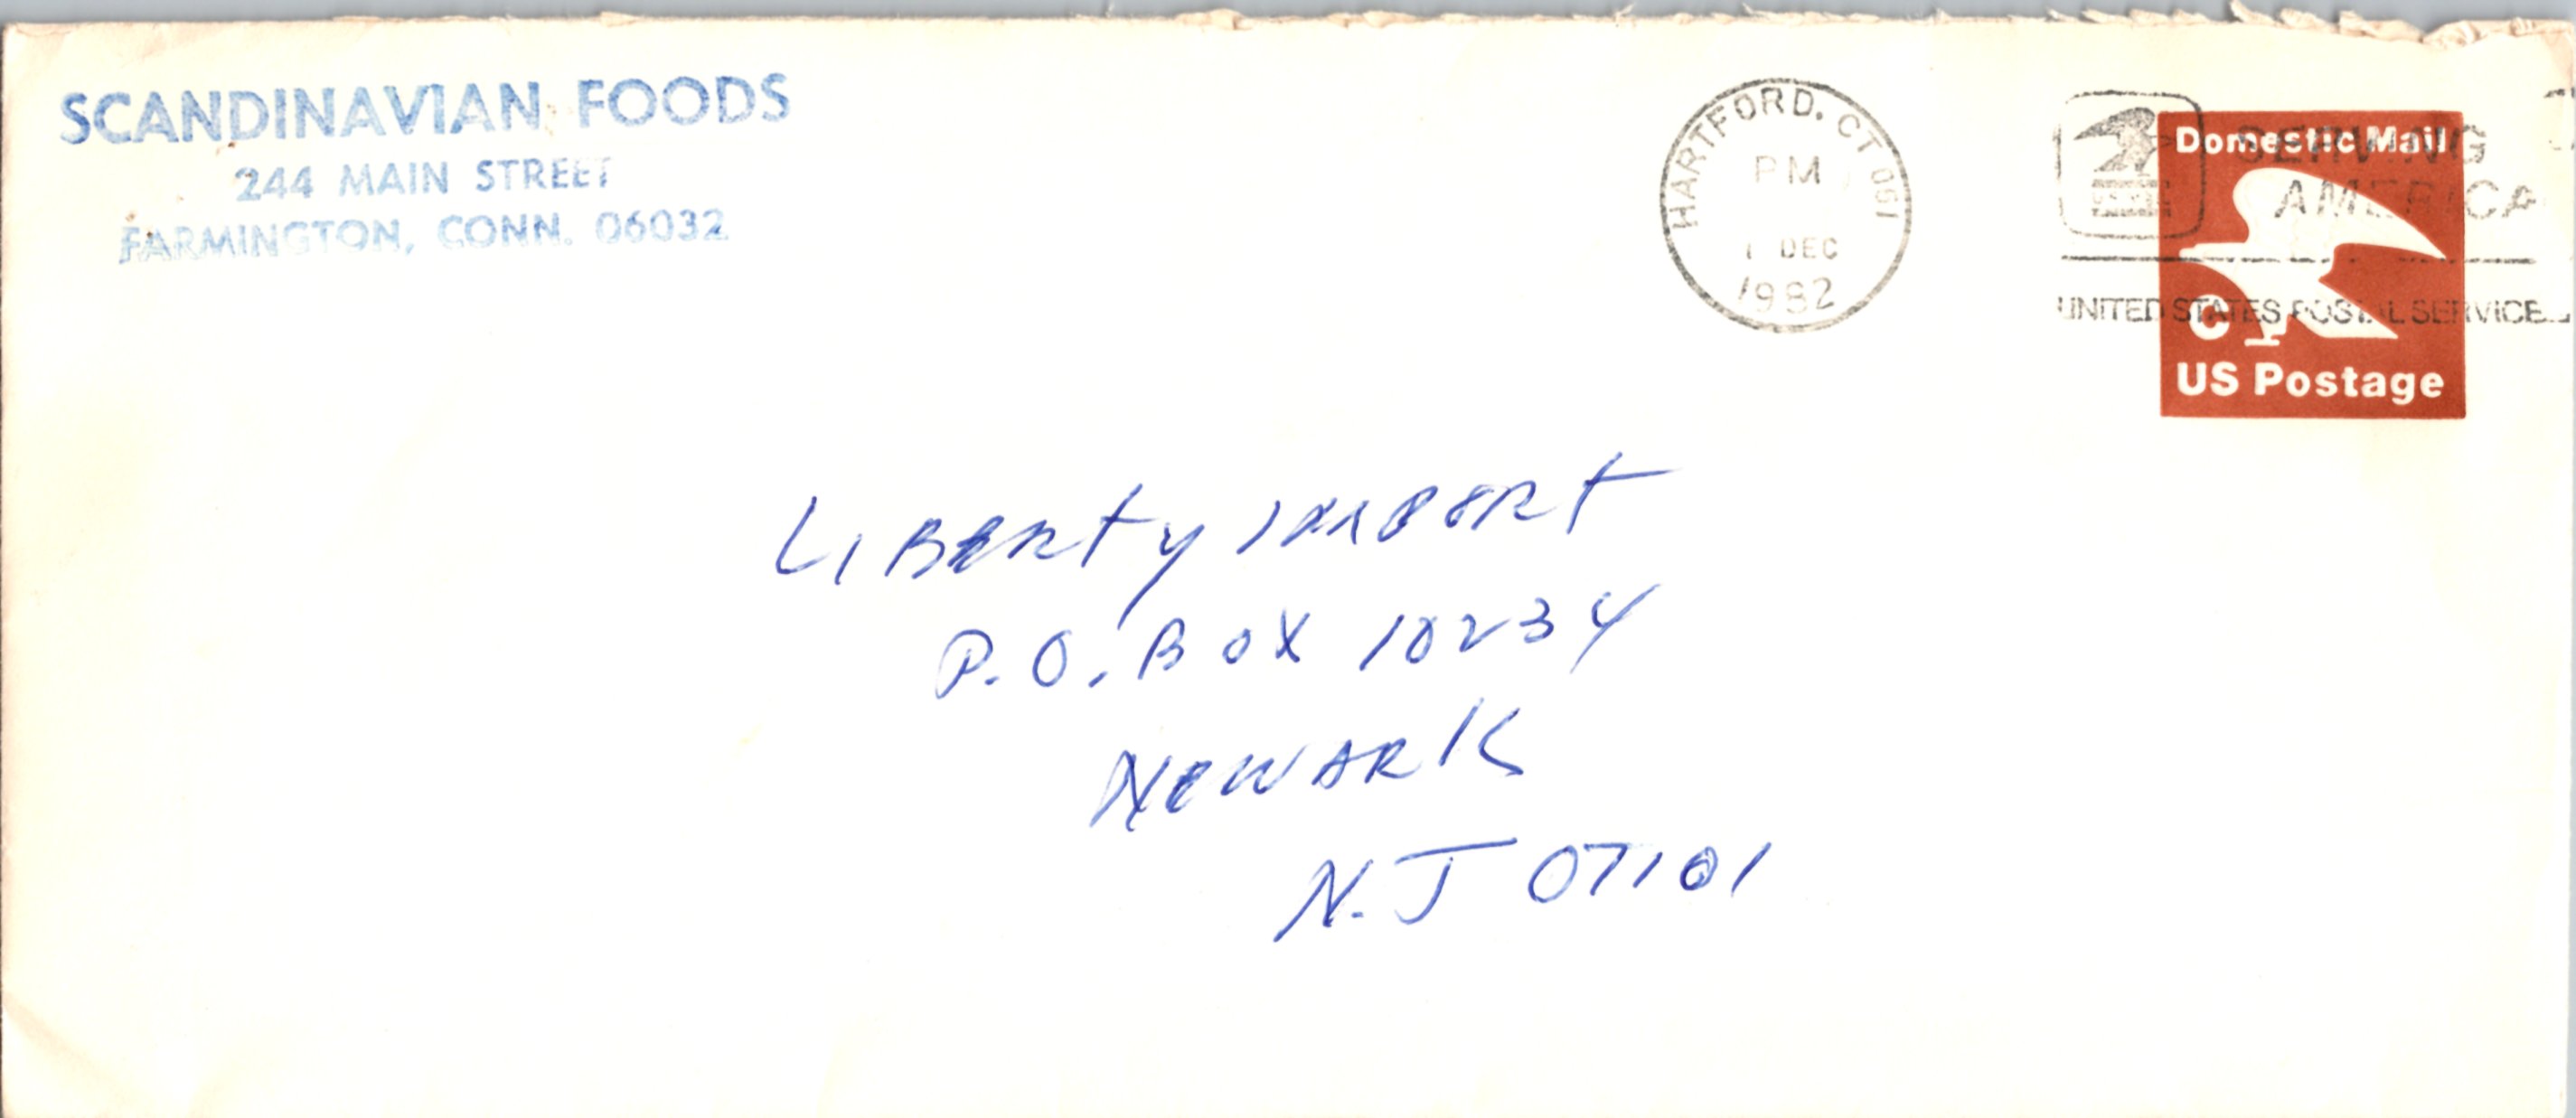 SCANDINAVIAN FOODS
244 MAIN STREET
FARMINGTON, CONN. 06032
HARTFORD. CT 061
PM
1 DEC
1982
SERVING
AMERICA
UNITED STATES POSTAL SERVICE
Domestic Mail
C
US Postage
LIBERTY IMPORT
P.O. BOX 10234
NEWARK
N.J 07101